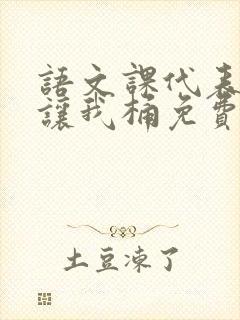 語文課代表
讓我桶免費
土豆凍了